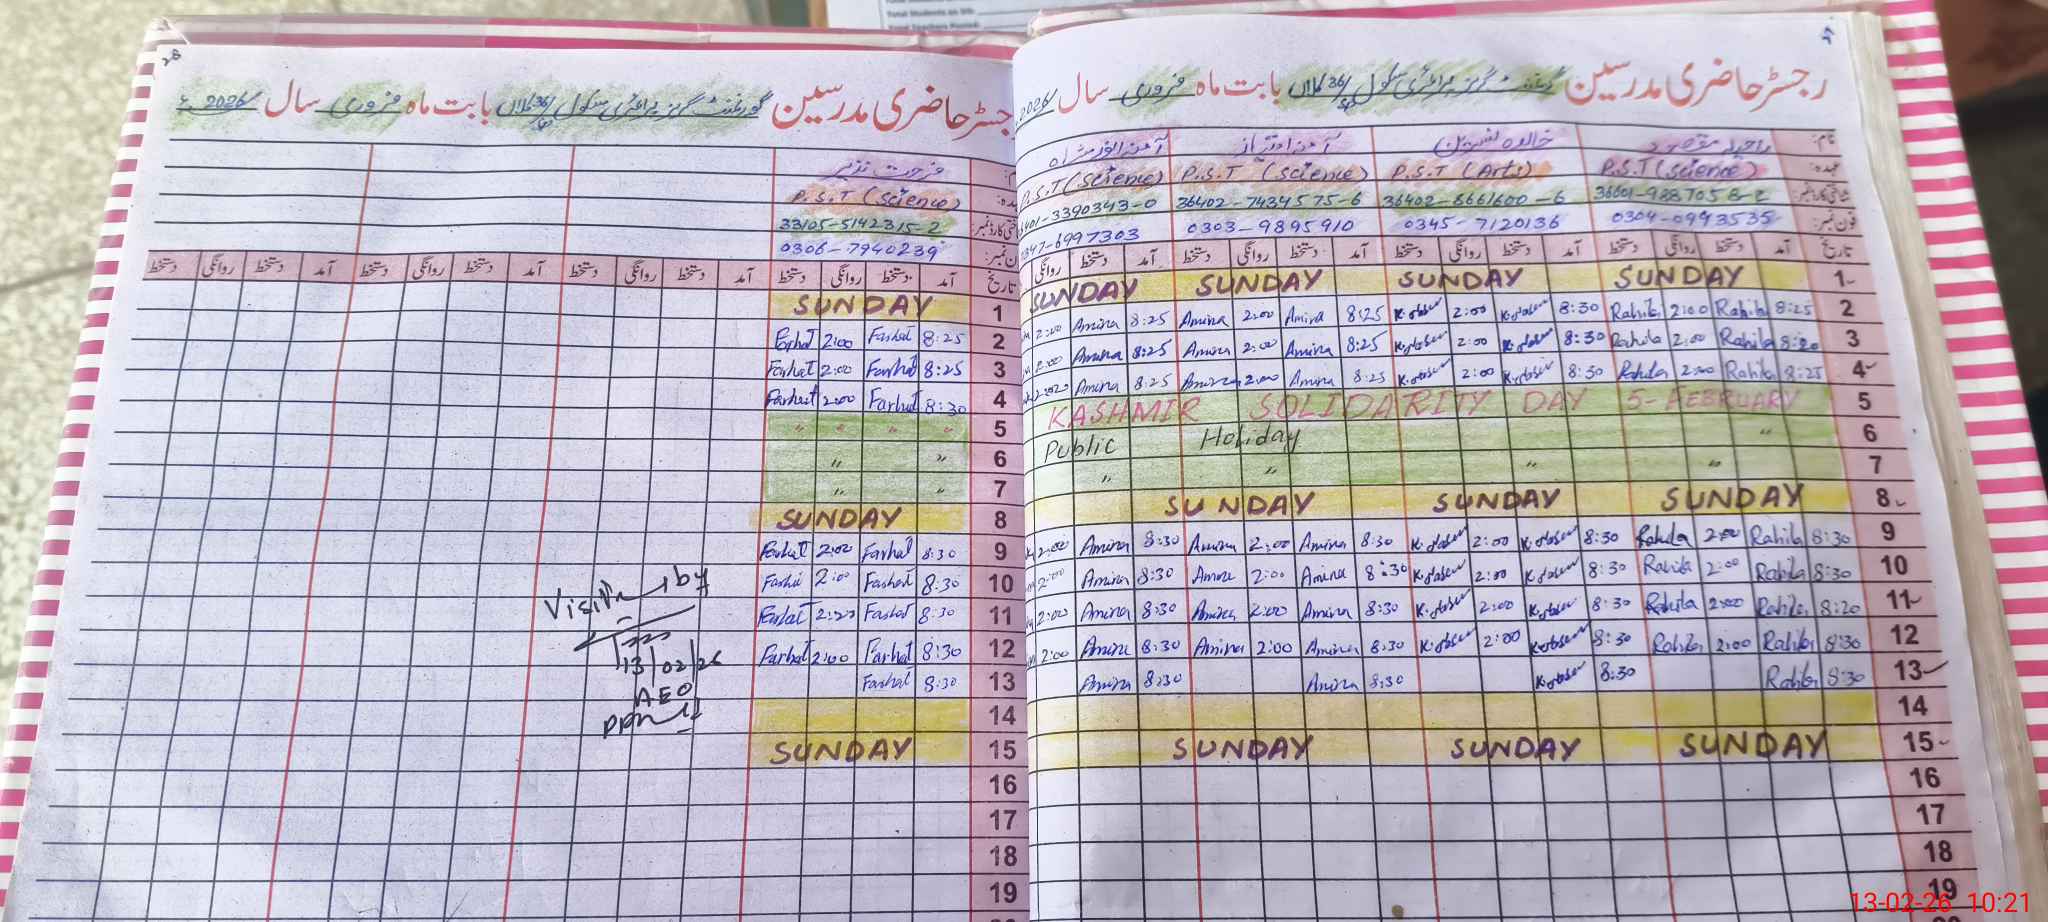 Total Students on Sis:
28
رجسٹر حاضری مدرسین گورنمنٹ گرلز پرائمری سکول 36/ بابت ماہ فروری سال 2026ء
فرحت نذیر
P.S.T (Science)
33105-5142315-2
0306-7940239
تاریخ آمد دستخط روانگی دستخط آمد دستخط روانگی دستخط آمد دستخط روانگی دستخط آمد دستخط روانگی دستخط
SUNDAY 1
Farhat 2:00 Farhat 8:25 2
Farhat 2:00 Farhat 8:25 3
Farhat 2:00 Farhat 8:30 4
" " " " 5
" " 6
" " 7
SUNDAY 8
Farhat 2:00 Farhat 8:30 9
Farhat 2:00 Farhat 8:30 10
Farhat 2:00 Farhat 8:30 11
Farhat 2:00 Farhat 8:30 12
Farhat 8:30 13
14
SUNDAY 15
16
17
18
19
by
13/02/26
AEO
رجسٹر حاضری مدرسین گورنمنٹ گرلز پرائمری سکول 36/ بابت ماہ فروری سال 2026
نام: راحیلہ مقصود خالدہ نسرین آمنہ امتیاز
عہدہ: P.S.T (Science) P.S.T (Arts) P.S.T (Science) P.S.T (Science)
36402-8661600-6 36402-7434575-6 3390343-0
فون نمبر: 0304-0943535 0345-7120136 0303-9895910 0347-6997303
تاریخ آمد دستخط روانگی دستخط آمد دستخط روانگی دستخط آمد دستخط روانگی دستخط آمد دستخط روانگی
SUNDAY SUNDAY SUNDAY SUNDAY 1
2:00 Amina 8:25 Amina 2:00 Amina 8:25 2:00 8:30 Rahila 2:00 Rahila 8:25 2
2:00 Amina 8:25 Amina 2:00 Amina 8:25 2:00 8:30 Rahila 2:00 Rahila 8:20 3
Amina 8:25 Amina 2:00 Amina 8:25 2:00 8:30 Rahila 2:00 Rahila 8:25 4
KASHMIR SOLIDARITY DAY 5-FEBRUARY 5
Public Holiday " 6
" " " " 7
SUNDAY SUNDAY SUNDAY 8
2:00 Amina 8:30 Amina 2:00 Amina 8:30 2:00 8:30 Rahila 2:00 Rahila 8:30 9
2:00 Amina 8:30 Amina 2:00 Amina 8:30 2:00 8:30 Rahila 2:00 Rahila 8:30 10
2:00 Amina 8:30 Amina 2:00 Amina 8:30 2:00 8:30 Rahila 2:00 Rahila 8:20 11
2:00 Amina 8:30 Amina 2:00 Amina 8:30 2:00 8:30 Rahila 2:00 Rahila 8:30 12
Amina 8:30 Amina 8:30 8:30 Rahila 8:30 13
14
SUNDAY SUNDAY SUNDAY 15
16
17
18
19
13-02-26 10:21